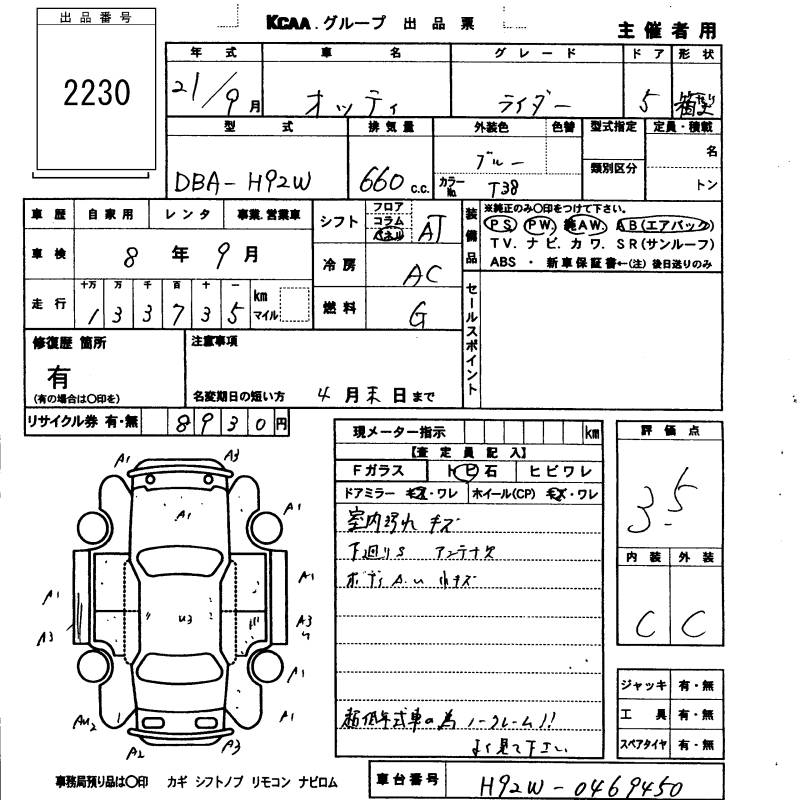 出品番号
2230
KCAA.グループ 出品票
主催者用
年式 車名 グレード ドア 形状
21/9月 オッティ ライダー 5
型式 排気量 外装色 色替 型式指定 定員・積載
DBA-H92W 660 c.c. ブルー 名
カラーNo. T38 類別区分 トン
車歴 自家用 レンタ 事業.営業車
車検 8年9月
走行 十万 万 千 百 十 一 km マイル
1 3 3 7 3 5
シフト フロア コラム パネル AT
冷房 AC
燃料 G
装備品 ※純正のみ○印をつけて下さい。
PS PW. 純AW. AB(エアバック)
TV. ナビ. カワ. SR(サンルーフ)
ABS ・ 新車保証書←(注) 後日送りのみ
セールスポイント
修復歴 箇所
有
(有の場合は○印を)
注意事項
名変期日の短い方 4月末日まで
リサイクル券 有・無 8 9 3 0 円
現メーター指示 km
【査定員記入】
Fガラス トビ石 ヒビワレ
ドアミラー キズ・ワレ ホイール(CP) キズ・ワレ
室内汚れ キズ
下廻りS アンテナ欠
ボディA.u 小キズ
超低年式車の為 ノークレーム!!
よく見て下さい
評価点
3.5
内装 外装
C C
ジャッキ 有・無
工具 有・無
スペアタイヤ 有・無
A1 A3
A1
A1 A1
U3
A3 A3
A1
AU2 A1
A2 A3
事務局預り品は○印 カギ シフトノブ リモコン ナビロム
車台番号 H92W-0469450